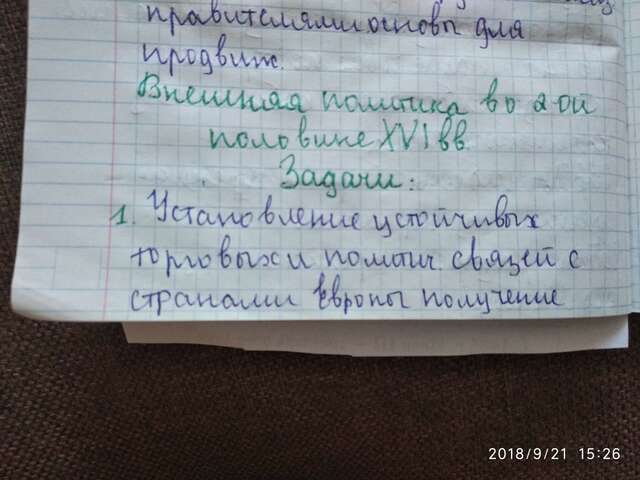 правителями основы для
продвиж.
Внешняя политика во 2 ой
половине XVI вв.
Задачи:
1. Установление устойчивых
торговых и политич. связей с
странами Европы получение
2018/9/21 15:26